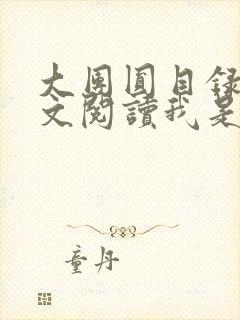 大團圓目錄
文閱讀我是
童丹